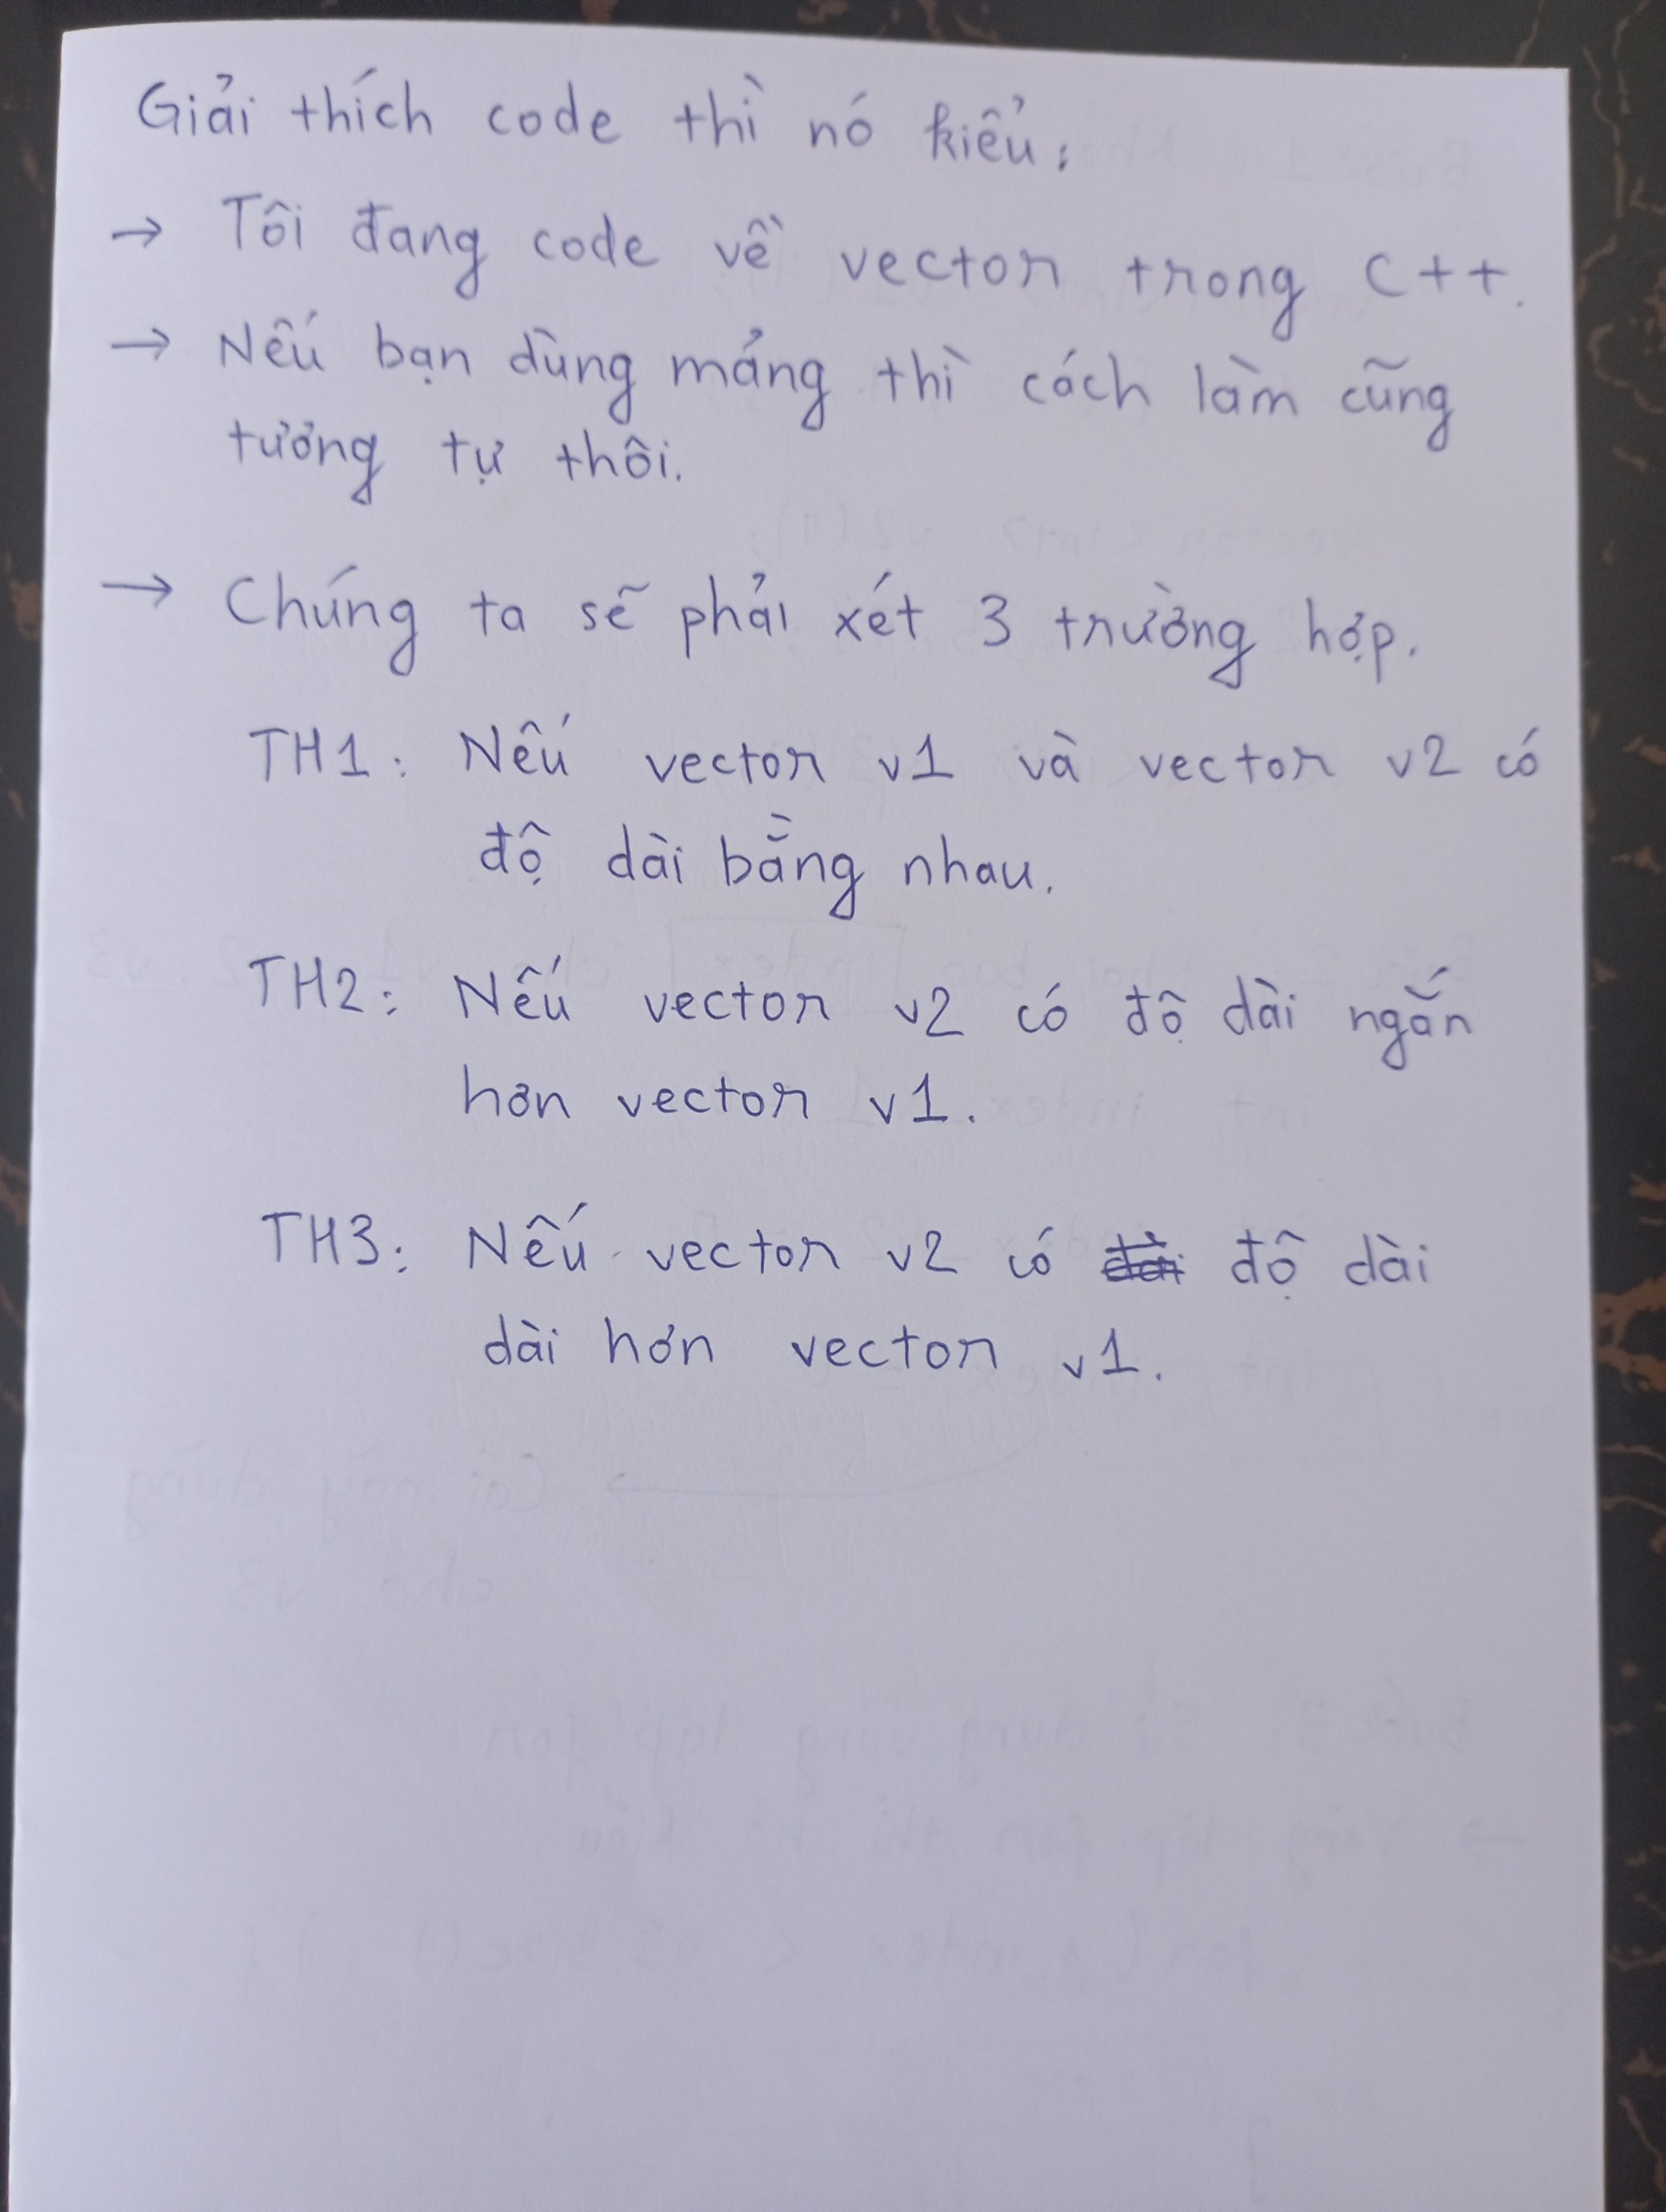 Giải thích code thì nó kiểu:
→ Tôi đang code về vector trong C++.
→ Nếu bạn dùng mảng thì cách làm cũng
tương tự thôi.
→ Chúng ta sẽ phải xét 3 trường hợp.
TH1: Nếu vector v1 và vector v2 có
độ dài bằng nhau.
TH2: Nếu vector v2 có độ dài ngắn
hơn vector v1.
TH3: Nếu vector v2 có độ dài
dài hơn vector v1.